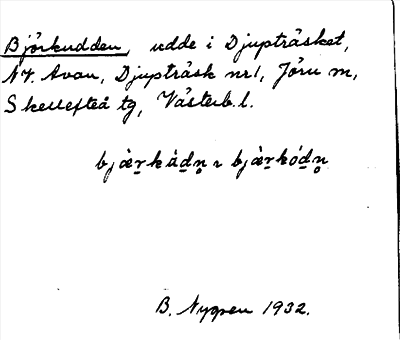 Björkudden, udde i Djupträsket,
NV. Avan, Djupträsk nr 1, Jörn sn,
Skellefteå tg, Västerb. l.
B. Nygren 1932.